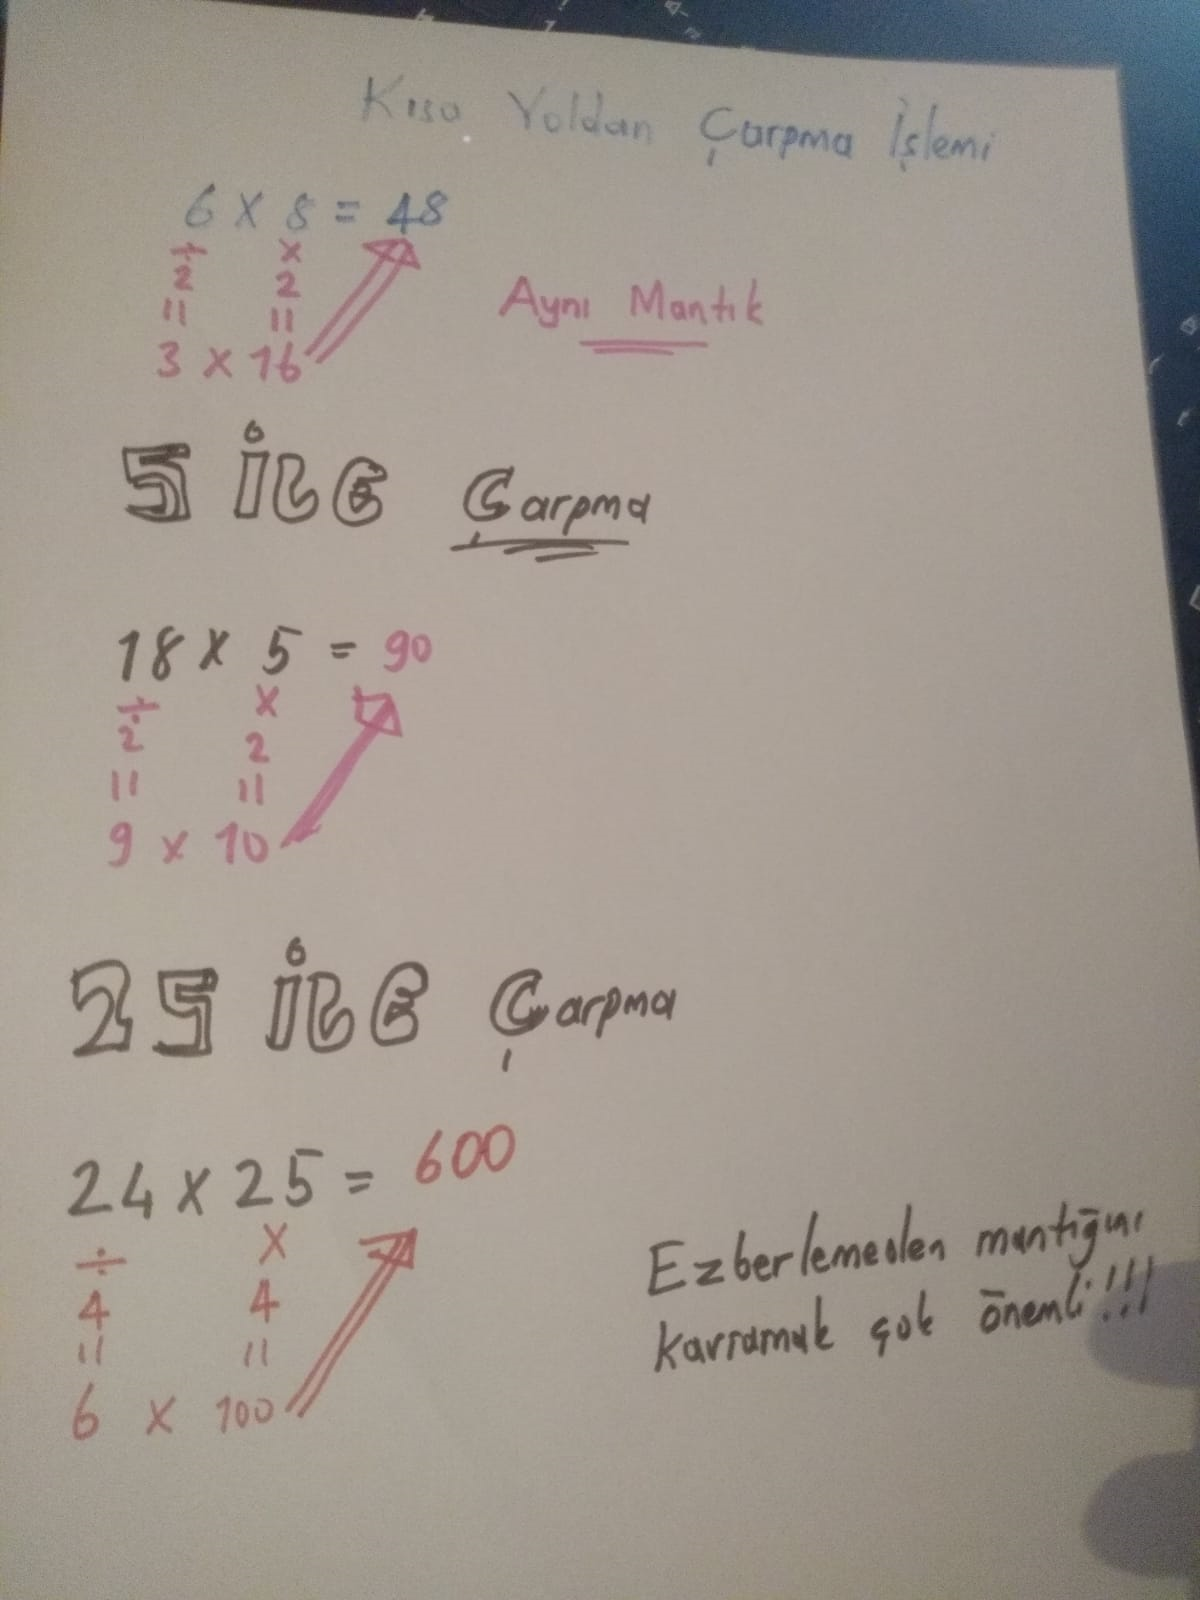 Kısa Yoldan Çarpma İşlemi
6 x 8 = 48
÷ x
2 2
= =
3 x 16
Aynı Mantık
5 İLE Çarpma
18 x 5 = 90
÷ x
2 2
= =
9 x 10
25 İLE Çarpma
24 x 25 = 600
÷ x
4 4
= =
6 x 100
Ezberlemeden mantığını
kavramak çok önemli!!!